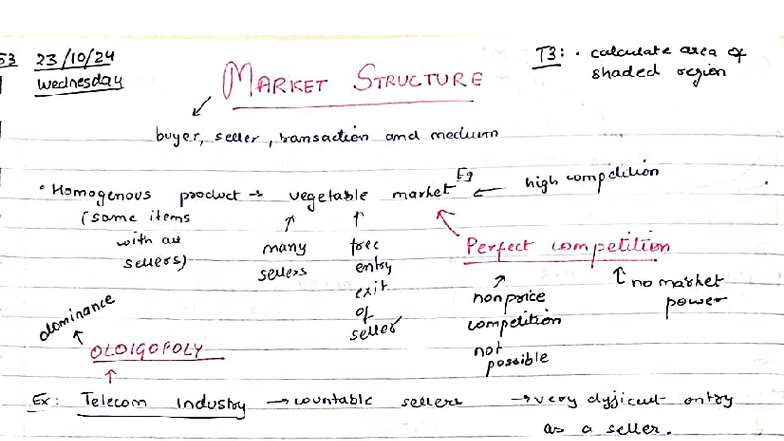 53 23/10/24
Wednesday
T3: • calculate area of
shaded region
MARKET STRUCTURE
buyer, seller, transaction and medium
• Homogenous product → vegetable market Eg ← high competition
(same items
with all
sellers)
many
sellers
free
entry
exit
of
seller
Perfect competition
non price
competition
not
possible
no market
power
dominance
OLOIGOPOLY
Ex: Telecom Industry → countable sellers → very difficult entry
as a seller.